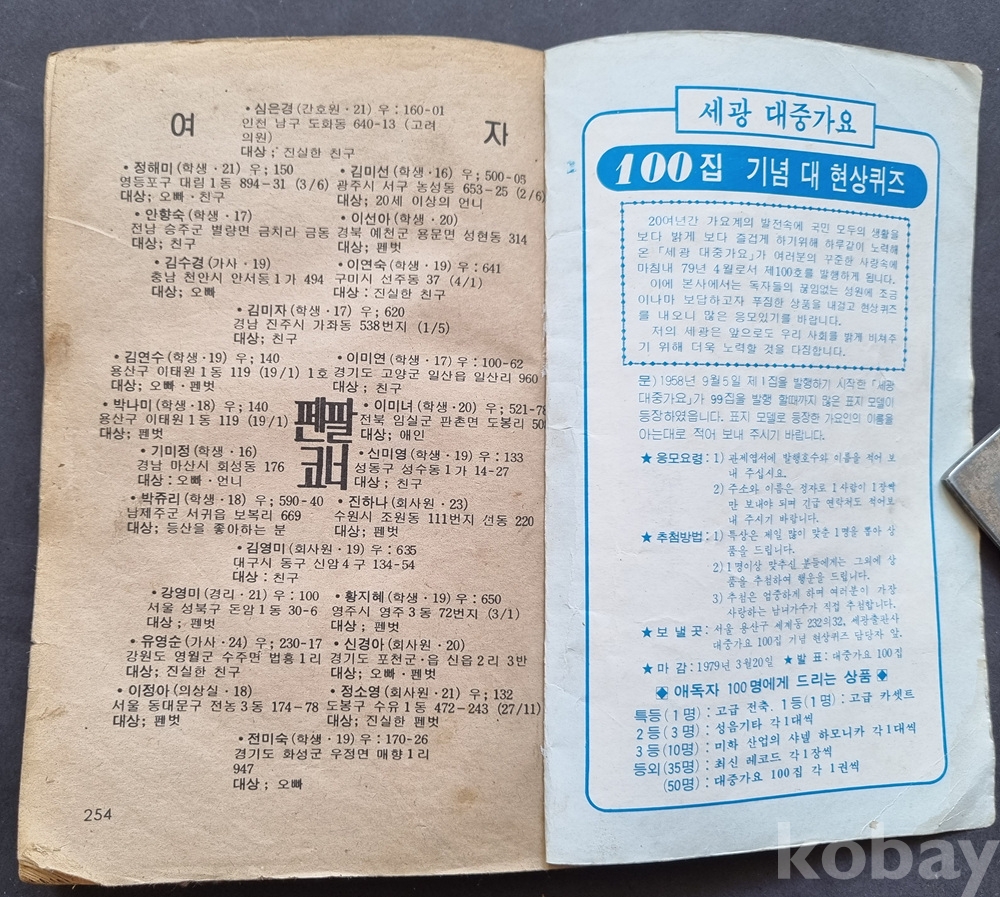 여 자
• 심은경(간호원 · 21) 우 : 160-01
인천 남구 도화동 640-13 (고려
의원)
대상 ; 진실한 친구
• 정해미(학생 · 21) 우; 150
영등포구 대림 1동 894-31 (3/6)
대상; 오빠 · 친구
• 김미선(학생 · 16) 우; 500-05
광주시 서구 농성동 653-25 (2/6)
대상; 20세 이상의 언니
• 안향숙(학생 · 17)
전남 승주군 별량면 금치리 금동
대상; 친구
• 이선아(학생 · 20)
경북 예천군 용문면 성현동 314
대상; 펜벗
• 김수경(가사 · 19)
충남 천안시 안서동 1가 494
대상; 오빠
• 이연숙(학생 · 19) 우 : 641
구미시 선주동 37 (4/1)
대상 : 진실한 친구
• 김미자(학생 · 17) 우; 620
경남 진주시 가좌동 538번지 (1/5)
대상; 친구
• 김연수(학생 · 19) 우; 140
용산구 이태원 1동 119 (19/1) 1호
대상; 오빠 · 펜벗
• 이미연(학생 · 17) 우 : 100-62
경기도 고양군 일산읍 일산리 960
대상 ; 친구
• 박나미(학생 · 18) 우; 140
용산구 이태원 1동 119 (19/1)
대상; 펜벗
펜팔
코너
• 이미녀(학생 · 20) 우; 521-78
전북 임실군 관촌면 도봉리
대상; 애인
• 기미정(학생 · 16)
경남 마산시 회성동 176
대상 : 오빠 · 언니
• 신미영(학생 · 19) 우 : 133
성동구 성수동 1가 14-27
대상 ; 친구
• 박쥬리(학생 · 18) 우; 590-40
남제주군 서귀읍 보목리 669
대상; 등산을 좋아하는 분
• 진하나(회사원 · 23)
수원시 조원동 111번지 선동 220
대상; 펜벗
• 김영미(회사원 · 19) 우 : 635
대구시 동구 신암 4구 134-54
대상 : 친구
• 강영미(경리 · 21) 우 : 100
서울 성북구 돈암 1동 30-6
대상 ; 펜벗
• 황지혜(학생 · 19) 우; 650
영주시 영주 3동 72번지 (3/1)
대상; 펜벗
• 유영순(가사 · 24) 우; 230-17
강원도 영월군 수주면 법흥 1리
대상; 진실한 친구
• 신경아(회사원 · 20)
경기도 포천군 · 읍 신읍 2리 3반
대상; 오빠 · 펜벗
• 이정아(의상실 · 18)
서울 동대문구 전농 3동 174-78
대상; 펜벗
• 정소영(회사원 · 21) 우; 132
도봉구 수유 1동 472-243 (27/11)
대상; 진실한 펜벗
• 전미숙(학생 · 19) 우; 170-26
경기도 화성군 우정면 매향 1리
947
대상 ; 오빠
254
세광 대중가요
100집 기념 대 현상퀴즈
20여년간 가요계의 발전속에 국민 모두의 생활을
보다 밝게 보다 즐겁게 하기위해 하루같이 노력해
온 「세광 대중가요」가 여러분의 꾸준한 사랑속에
마침내 79년 4월로서 제100호를 발행하게 됩니다.
이에 본사에서는 독자들의 끊임없는 성원에 조금
이나마 보답하고자 푸짐한 상품을 내걸고 현상퀴즈
를 내오니 많은 응모있기를 바랍니다.
저의 세광은 앞으로도 우리 사회를 밝게 비쳐주
기 위해 더욱 노력할 것을 다짐합니다.
문) 1958년 9월 5일 제 1집을 발행하기 시작한 「세광
대중가요」가 99집을 발행 할때까지 많은 표지 모델이
등장하였읍니다. 표지 모델로 등장한 가요인의 이름을
아는대로 적어 보내 주시기 바랍니다.
★ 응모요령 : 1) 관제엽서에 발행호수와 이름을 적어 보
내 주십시요.
2) 주소와 이름은 정자로 1사람이 1장씩
만 보내야 되며 긴급 연락처도 적어보
내 주시기 바랍니다.
★ 추첨방법 : 1) 특상은 제일 많이 맞춘 1명을 뽑아 상
품을 드립니다.
2) 1명이상 맞추신 분들에게는 그외에 상
품을 추첨하여 행운을 드립니다.
3) 추첨은 엄중하게 하며 여러분이 가장
사랑하는 남녀가수가 직접 추첨합니다.
★ 보 낼 곳 : 서울 용산구 서계동 232의32. 세광출판사
대중가요 100집 기념 현상퀴즈 담당자 앞.
★ 마 감 : 1979년 3월20일 ★ 발 표 : 대중가요 100집
◆ 애독자 100명에게 드리는 상품 ◆
특등 (1명) : 고급 전축. 1등(1명) : 고급 카셋트
2등 (3명) : 성음기타 각 1대씩
3등 (10명) : 미화 산업의 샤넬 하모니카 각 1대씩
등외 (35명) : 최신 레코드 각 1장씩
(50명) : 대중가요 100집 각 1권씩
kobay